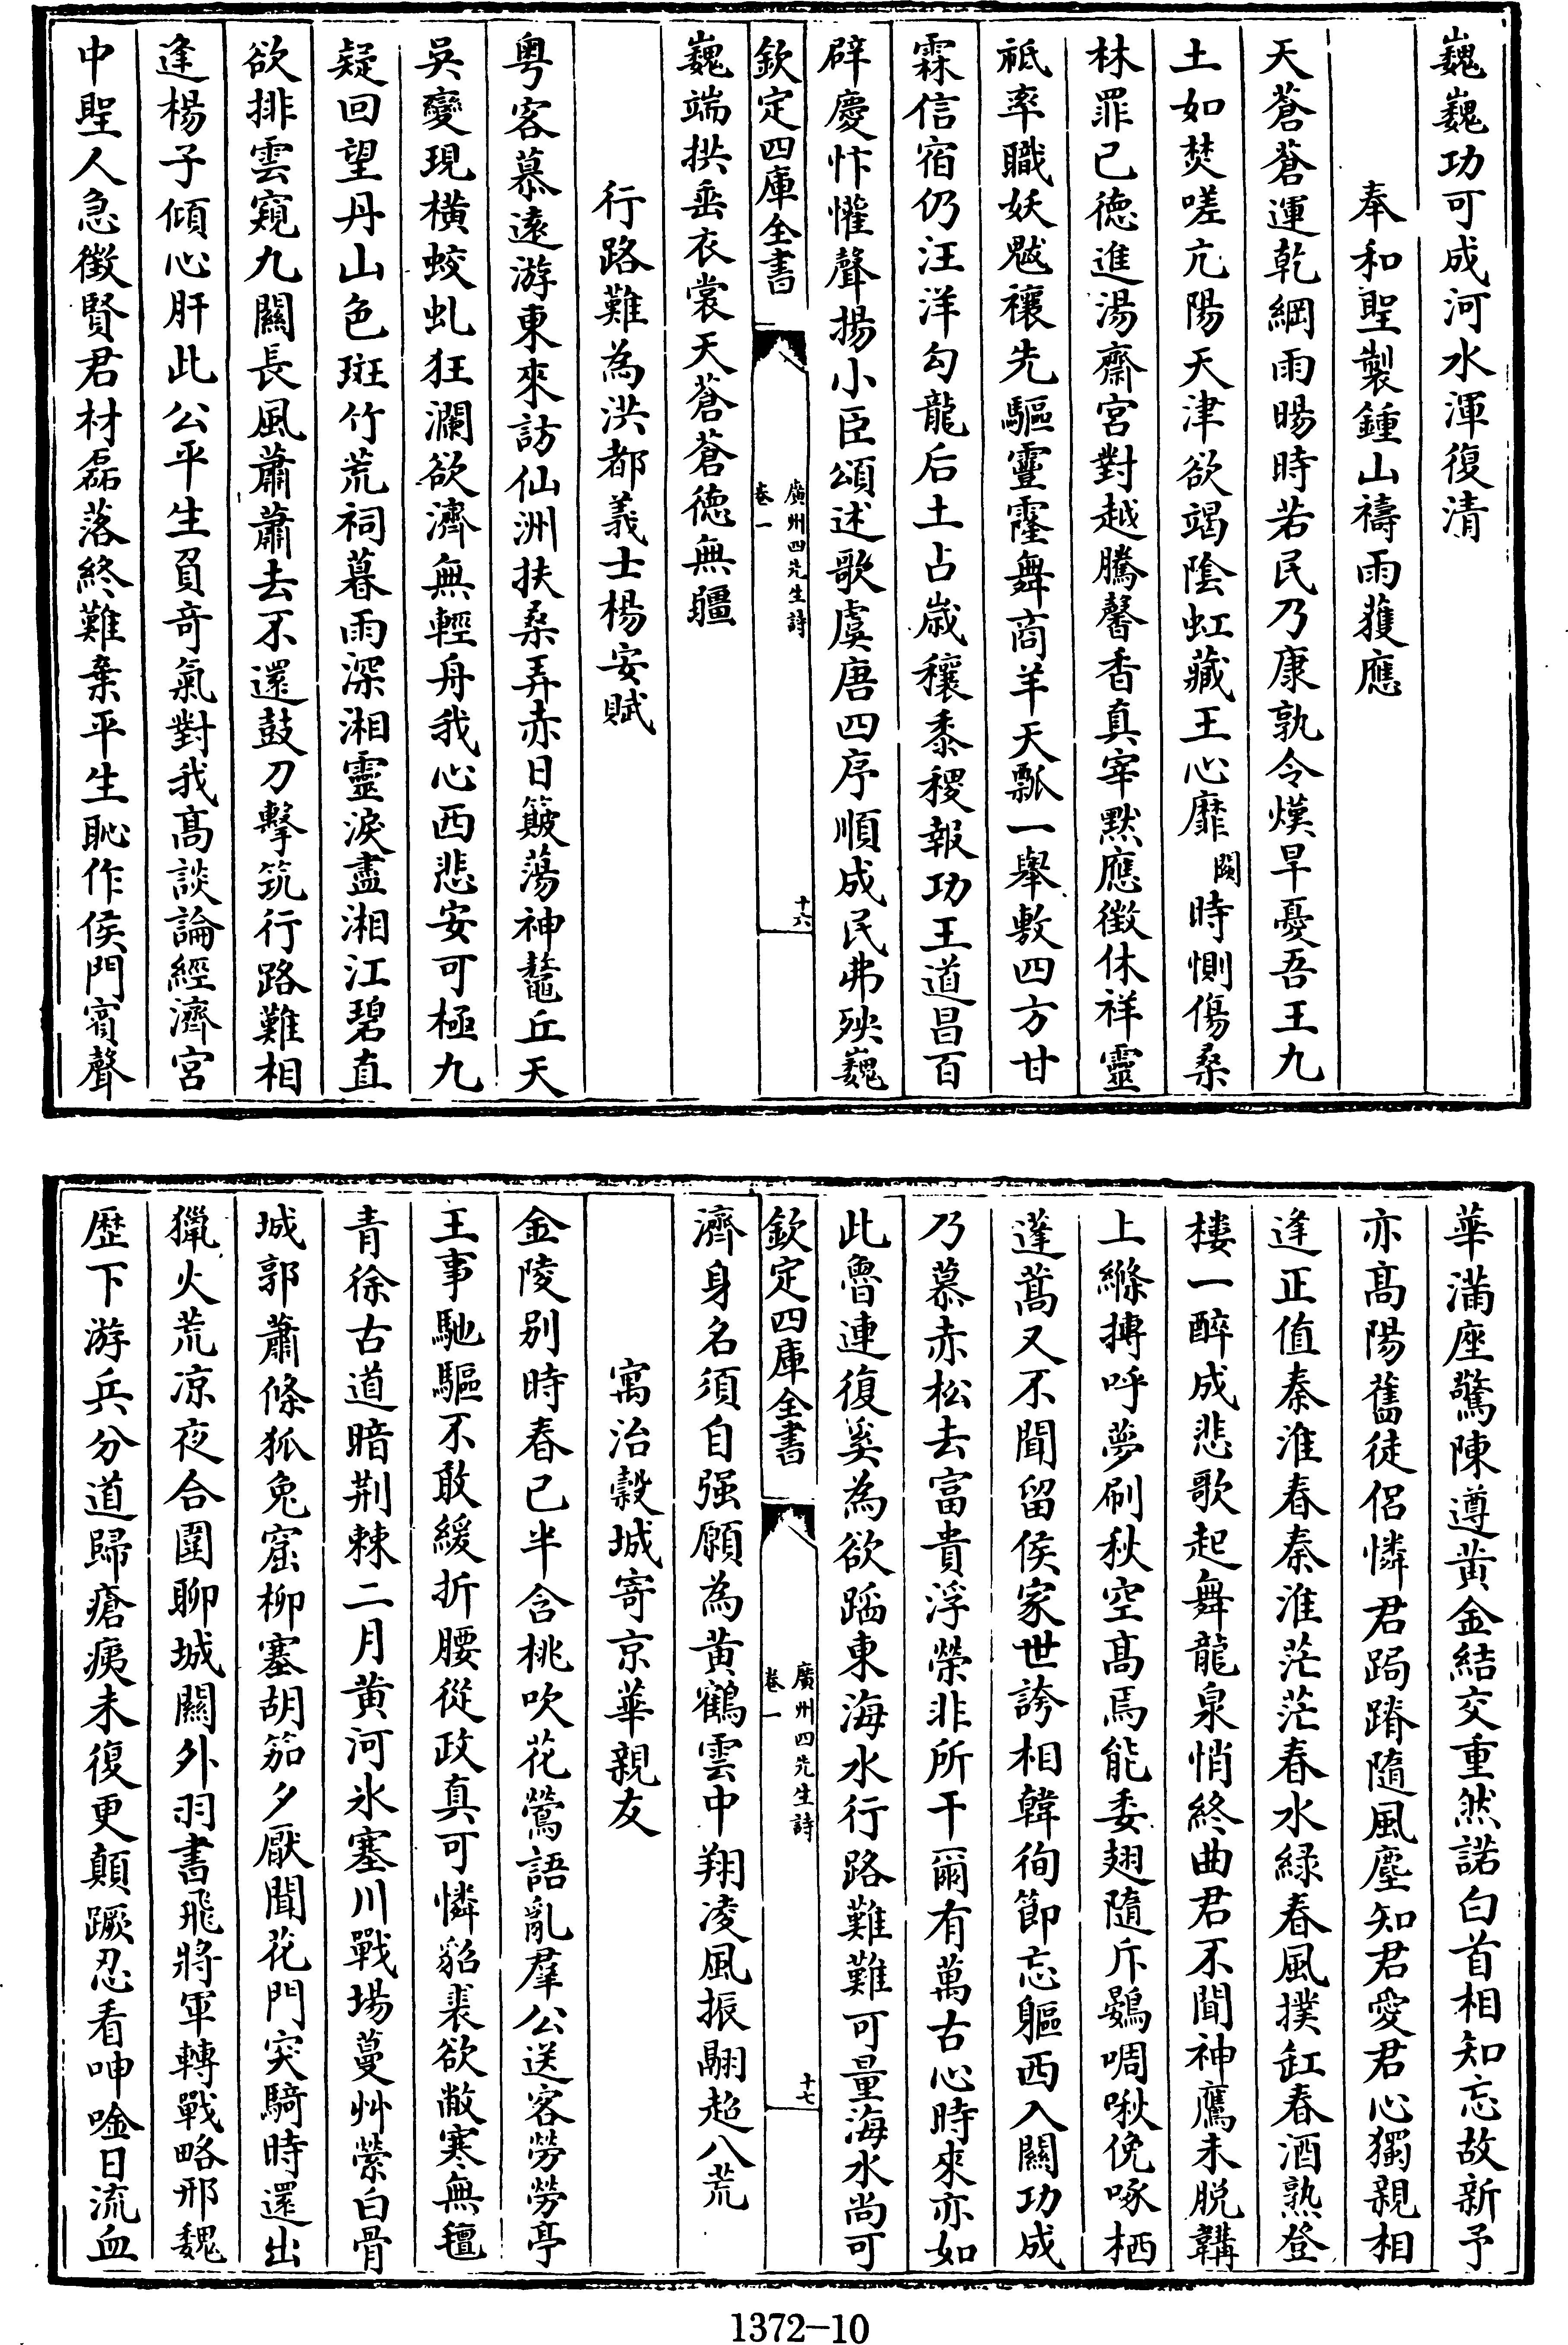 巍巍功可成河水渾復清
奉和聖製鍾山禱雨獲應
天蒼蒼運乾綱雨暘時若民乃康孰令熯旱憂吾王九
土如焚嗟亢陽天津欲竭陰虹藏王心靡闕時惻傷桑
林罪己德進湯齋宮對越騰馨香真宰默應徵休祥靈
祗率職妖魃禳先驅靈霳舞商羊天瓢一舉敷四方甘
霖信宿仍汪洋勾龍后土占歲穰黍稷報功王道昌百
辟慶忭懽聲揚小臣頌述歌虞唐四序順成民弗殃巍
欽定四庫全書
廣州四先生詩
卷一
十六
巍端拱垂衣裳天蒼蒼德無疆
行路難為洪都義士楊安賦
粵客慕遠游東來訪仙洲扶桑弄赤日簸蕩神鼇丘天
吳變現橫蛟虬狂瀾欲濟無輕舟我心西悲安可極九
疑回望丹山色斑竹荒祠暮雨深湘靈淚盡湘江碧直
欲排雲窺九關長風蕭蕭去不還鼓刀擊筑行路難相
逢楊子傾心肝此公平生負竒氣對我髙談論經濟宮
中聖人急徵賢君材磊落終難棄平生恥作侯門賓聲
華滿座驚陳遵黃金結交重然諾白首相知忘故新予
亦髙陽舊徒侶憐君跼蹐隨風塵知君愛君心獨親相
逢正值秦淮春秦淮茫茫春水緑春風撲缸春酒熟登
樓一醉成悲歌起舞龍泉悄終曲君不聞神鷹未脱鞲
上縧摶呼夢刷秋空髙焉能委翅隨斥鷃啁啾俛啄栖
蓬蒿又不聞留侯家世誇相韓徇節忘軀西入關功成
乃慕赤松去富貴浮榮非所干爾有萬古心時來亦如
此魯連復奚為欲蹈東海水行路難難可量海水尚可
欽定四庫全書
廣州四先生詩
卷一
十七
濟身名須自强願為黃鶴雲中翔凌風振翮超八荒
寓治穀城寄京華親友
金陵别時春已半含桃吹花鶯語亂羣公送客勞勞亭
王事馳驅不敢緩折腰從政真可憐貂裘欲敝寒無氊
青徐古道暗荆棘二月黃河氷塞川戰場蔓艸縈白骨
城郭蕭條狐兔窟柳塞胡笳夕厭聞花門突騎時還出
獵火荒凉夜合圍聊城關外羽書飛將軍轉戰略邢魏
歷下游兵分道歸瘡痍未復更顛蹶忍看呻唫日流血
1372-10